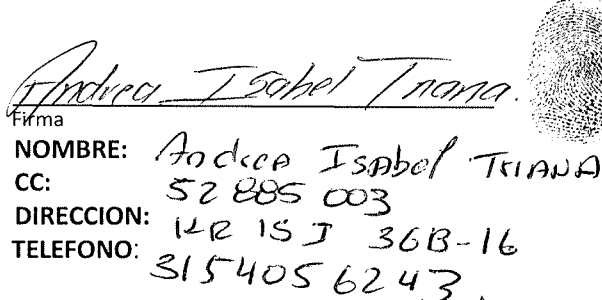 Andrea Isabel Triana.
Firma
NOMBRE: Andrea Isabel TRIANA
CC: 52 885 003
DIRECCION: KR 15 J 36B-16
TELEFONO: 315 405 6243